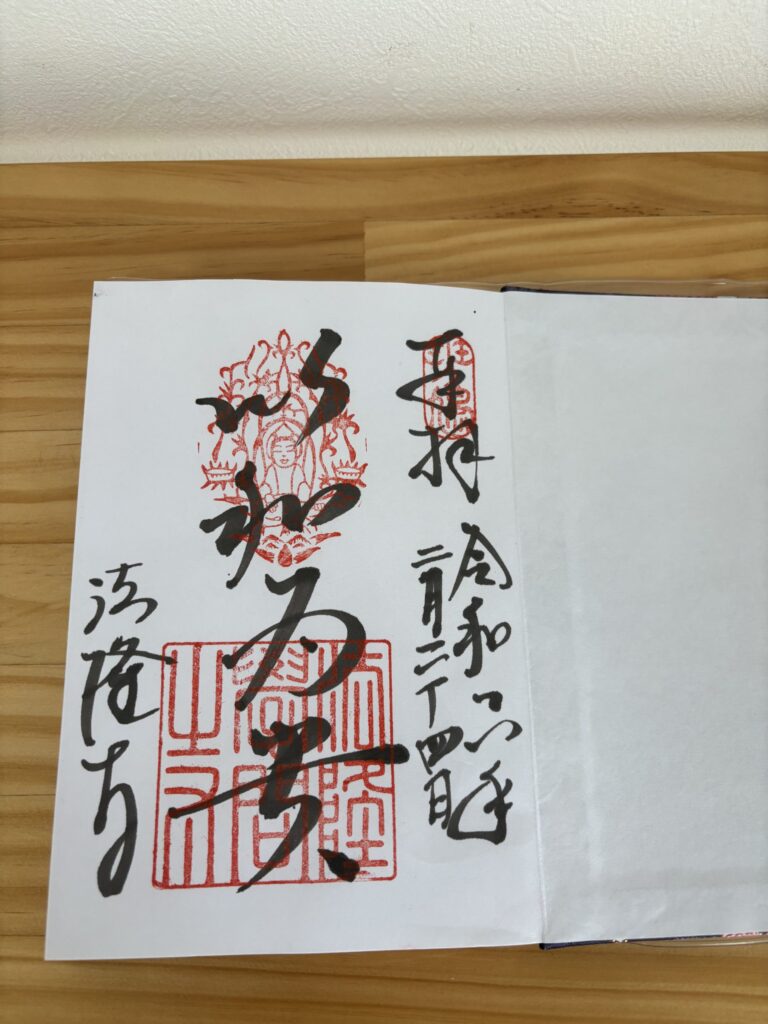 奉拝
令和六年
二月二十四日
以和為貴
法隆
學問
之寺
法隆寺